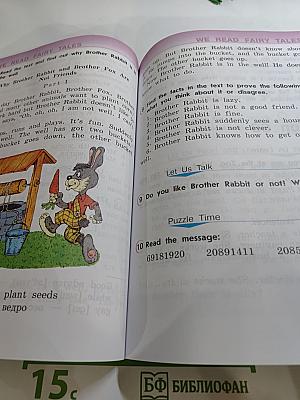 WE READ FAIRY TALES
Read the text and find out why Brother Rabbit
Why Brother Rabbit and Brother Fox Are
Not Friends
Part 1
day Brother Rabbit, Brother Fox, Brother
many other animals want to plant
Brother Rabbit doesn't
"Oh, oh, oh, I am not well. I
runs and plays. It's fun. Suddenly
well. The well has got two buckets
bucket goes down, the other bucket
plant seeds
ведро
WE READ FAIRY TALES
but Brother Rabbit doesn't know about
into the bucket, and the bucket goes
other bucket goes up.
Brother Rabbit is in the well. He doesn't
to do.
the facts in the text to prove the following
you think about it or disagree.
Brother Rabbit is lazy.
Rabbit is not a good friend.
Brother Rabbit is fine.
Brother Rabbit suddenly sees a house
Brother Rabbit is not clever.
Brother Rabbit knows how to get
Let Us Talk
9 Do you like Brother Rabbit or not?
Puzzle Time
10 Read the message:
69181920 20891411 2085
15
БФ БИБЛИОФАН